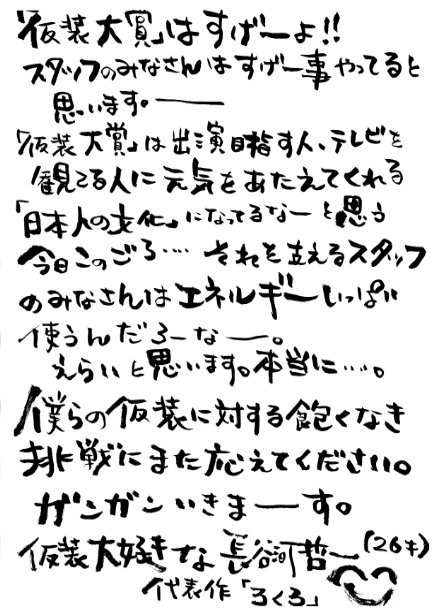 「仮装大賞」はすげーよ!!
スタッフのみなさんはすげー事やってると
思います。――
「仮装大賞」は出演目指す人、テレビを
観てる人に元気をあたえてくれる
「日本人の文化」になってるなーと思う
今日このごろ‥‥ それを支えるスタッフ
のみなさんはエネルギーいっぱい
使うんだろーなー。
えらいと思います。本当に‥‥。
僕らの仮装に対する飽くなき
挑戦にまた応えてください。
ガンガンいきまーす。
仮装大好きな 長谷河哲一(26才)
代表作「ろくろ」